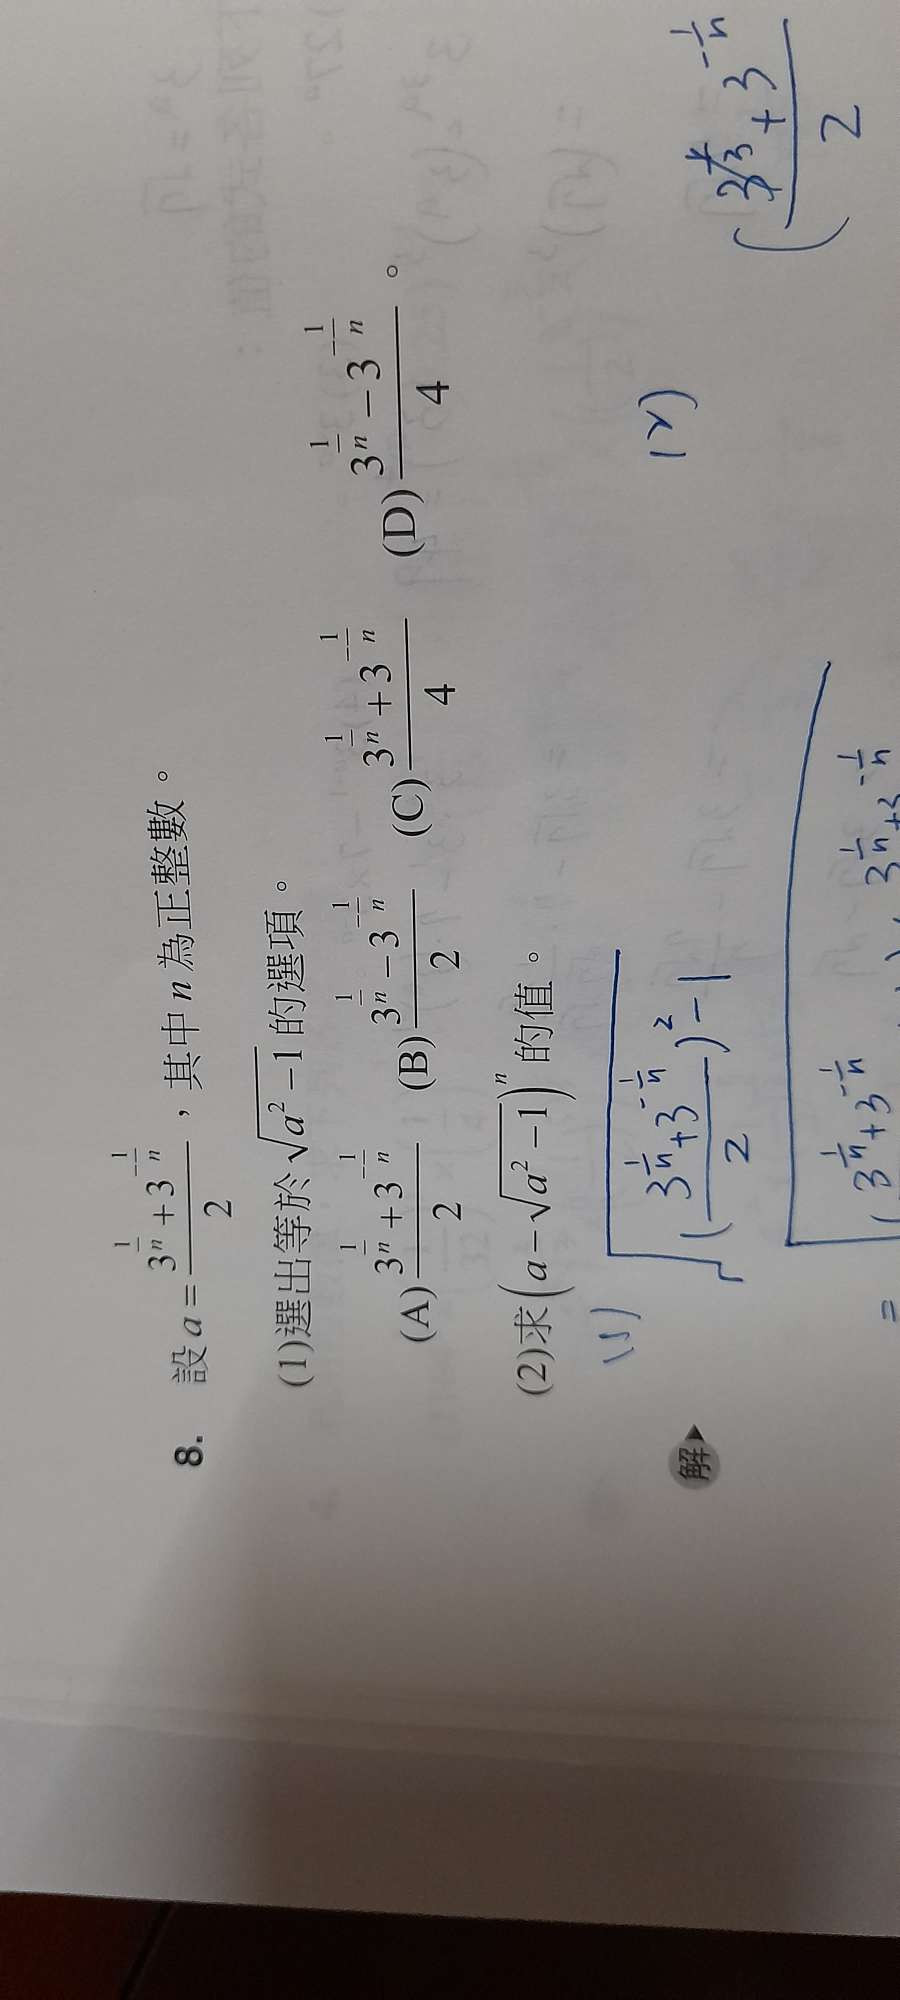 8. 設 a = (3^(1/n) + 3^(-1/n))/2，其中 n 為正整數。
(1)選出等於 √(a² − 1) 的選項。
(A) (3^(1/n) + 3^(-1/n))/2 (B) (3^(1/n) − 3^(-1/n))/2 (C) (3^(1/n) + 3^(-1/n))/4 (D) (3^(1/n) − 3^(-1/n))/4 。
(2)求 (a − √(a² − 1))^n 的值。
解
(1) √(((3^(1/n) + 3^(-1/n))/2)² − 1)
(2)